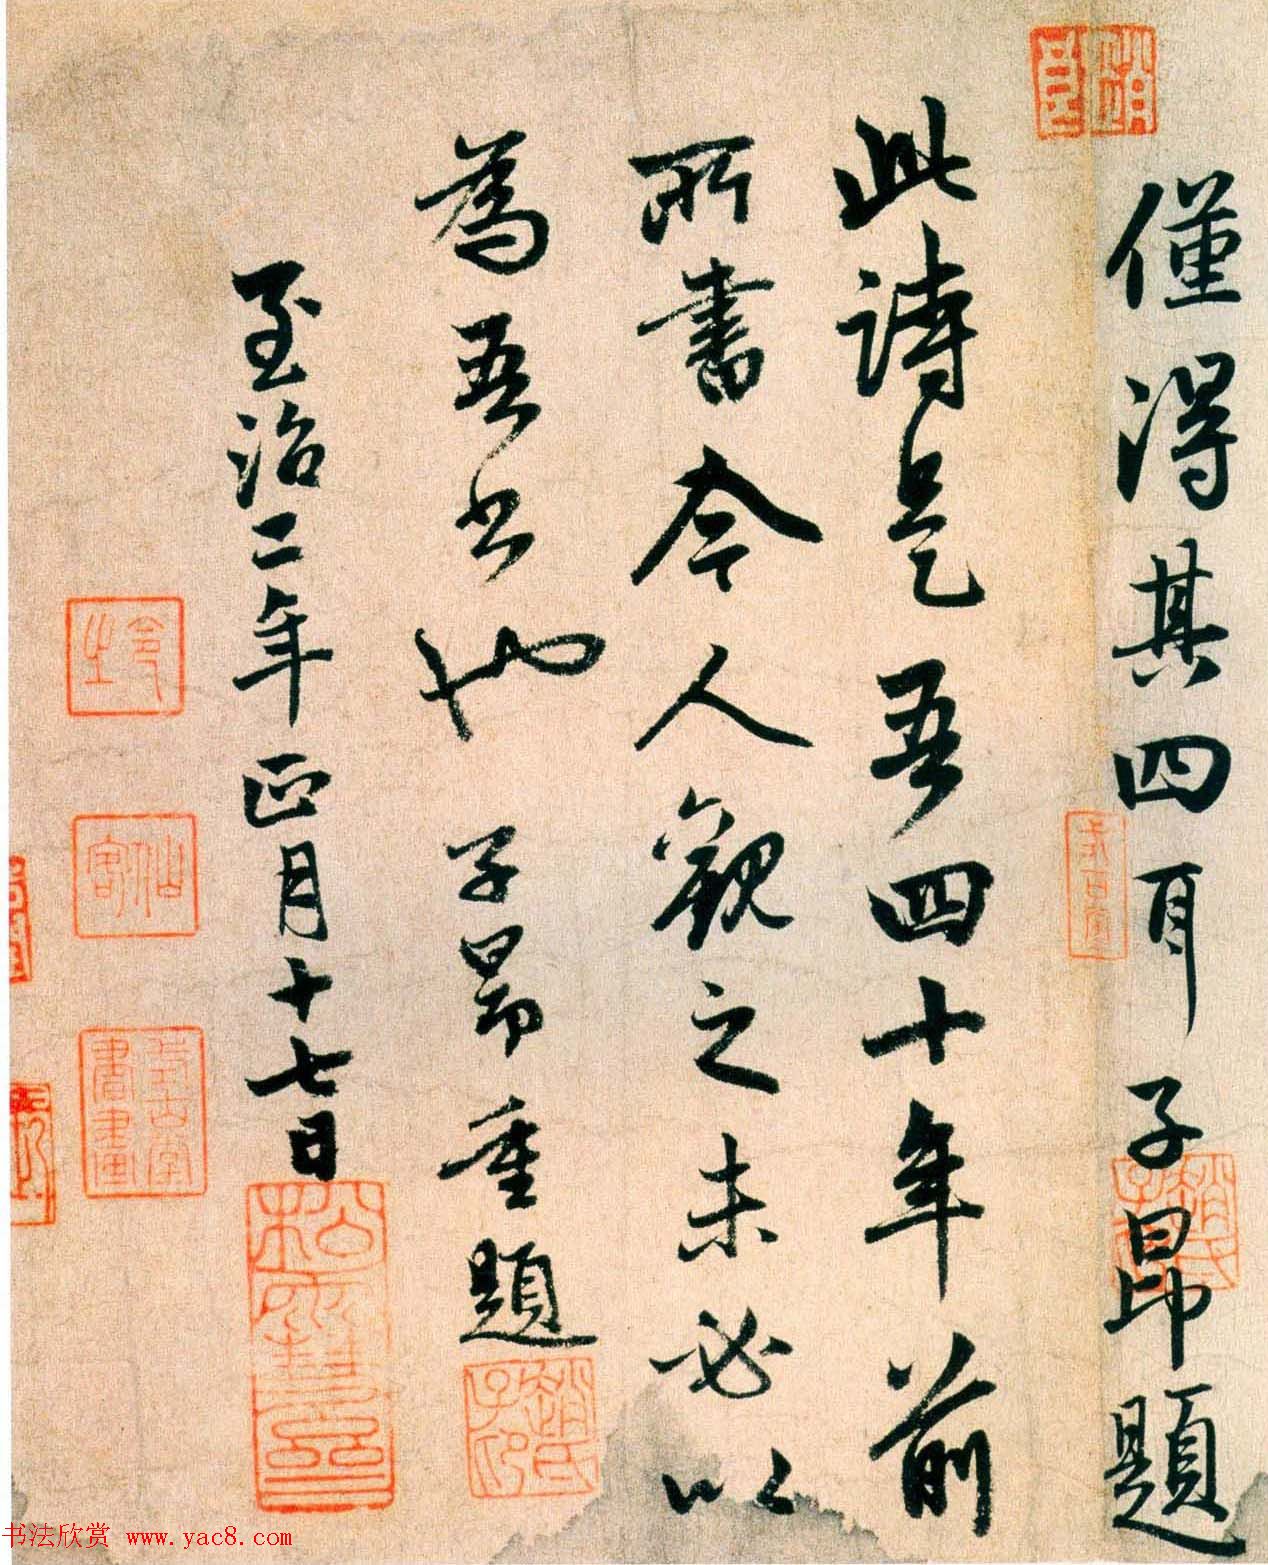 僅得其四耳子昂題
此詩是吾四十年前
所書今人觀之未必以
為吾書也子昂重題
至治二年正月十七日
趙氏子昂
趙氏子印
松雪齋
书法欣赏 www.yac8.com